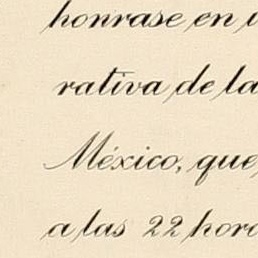 honrase en
rativa de la
México, que
a las 22 hora